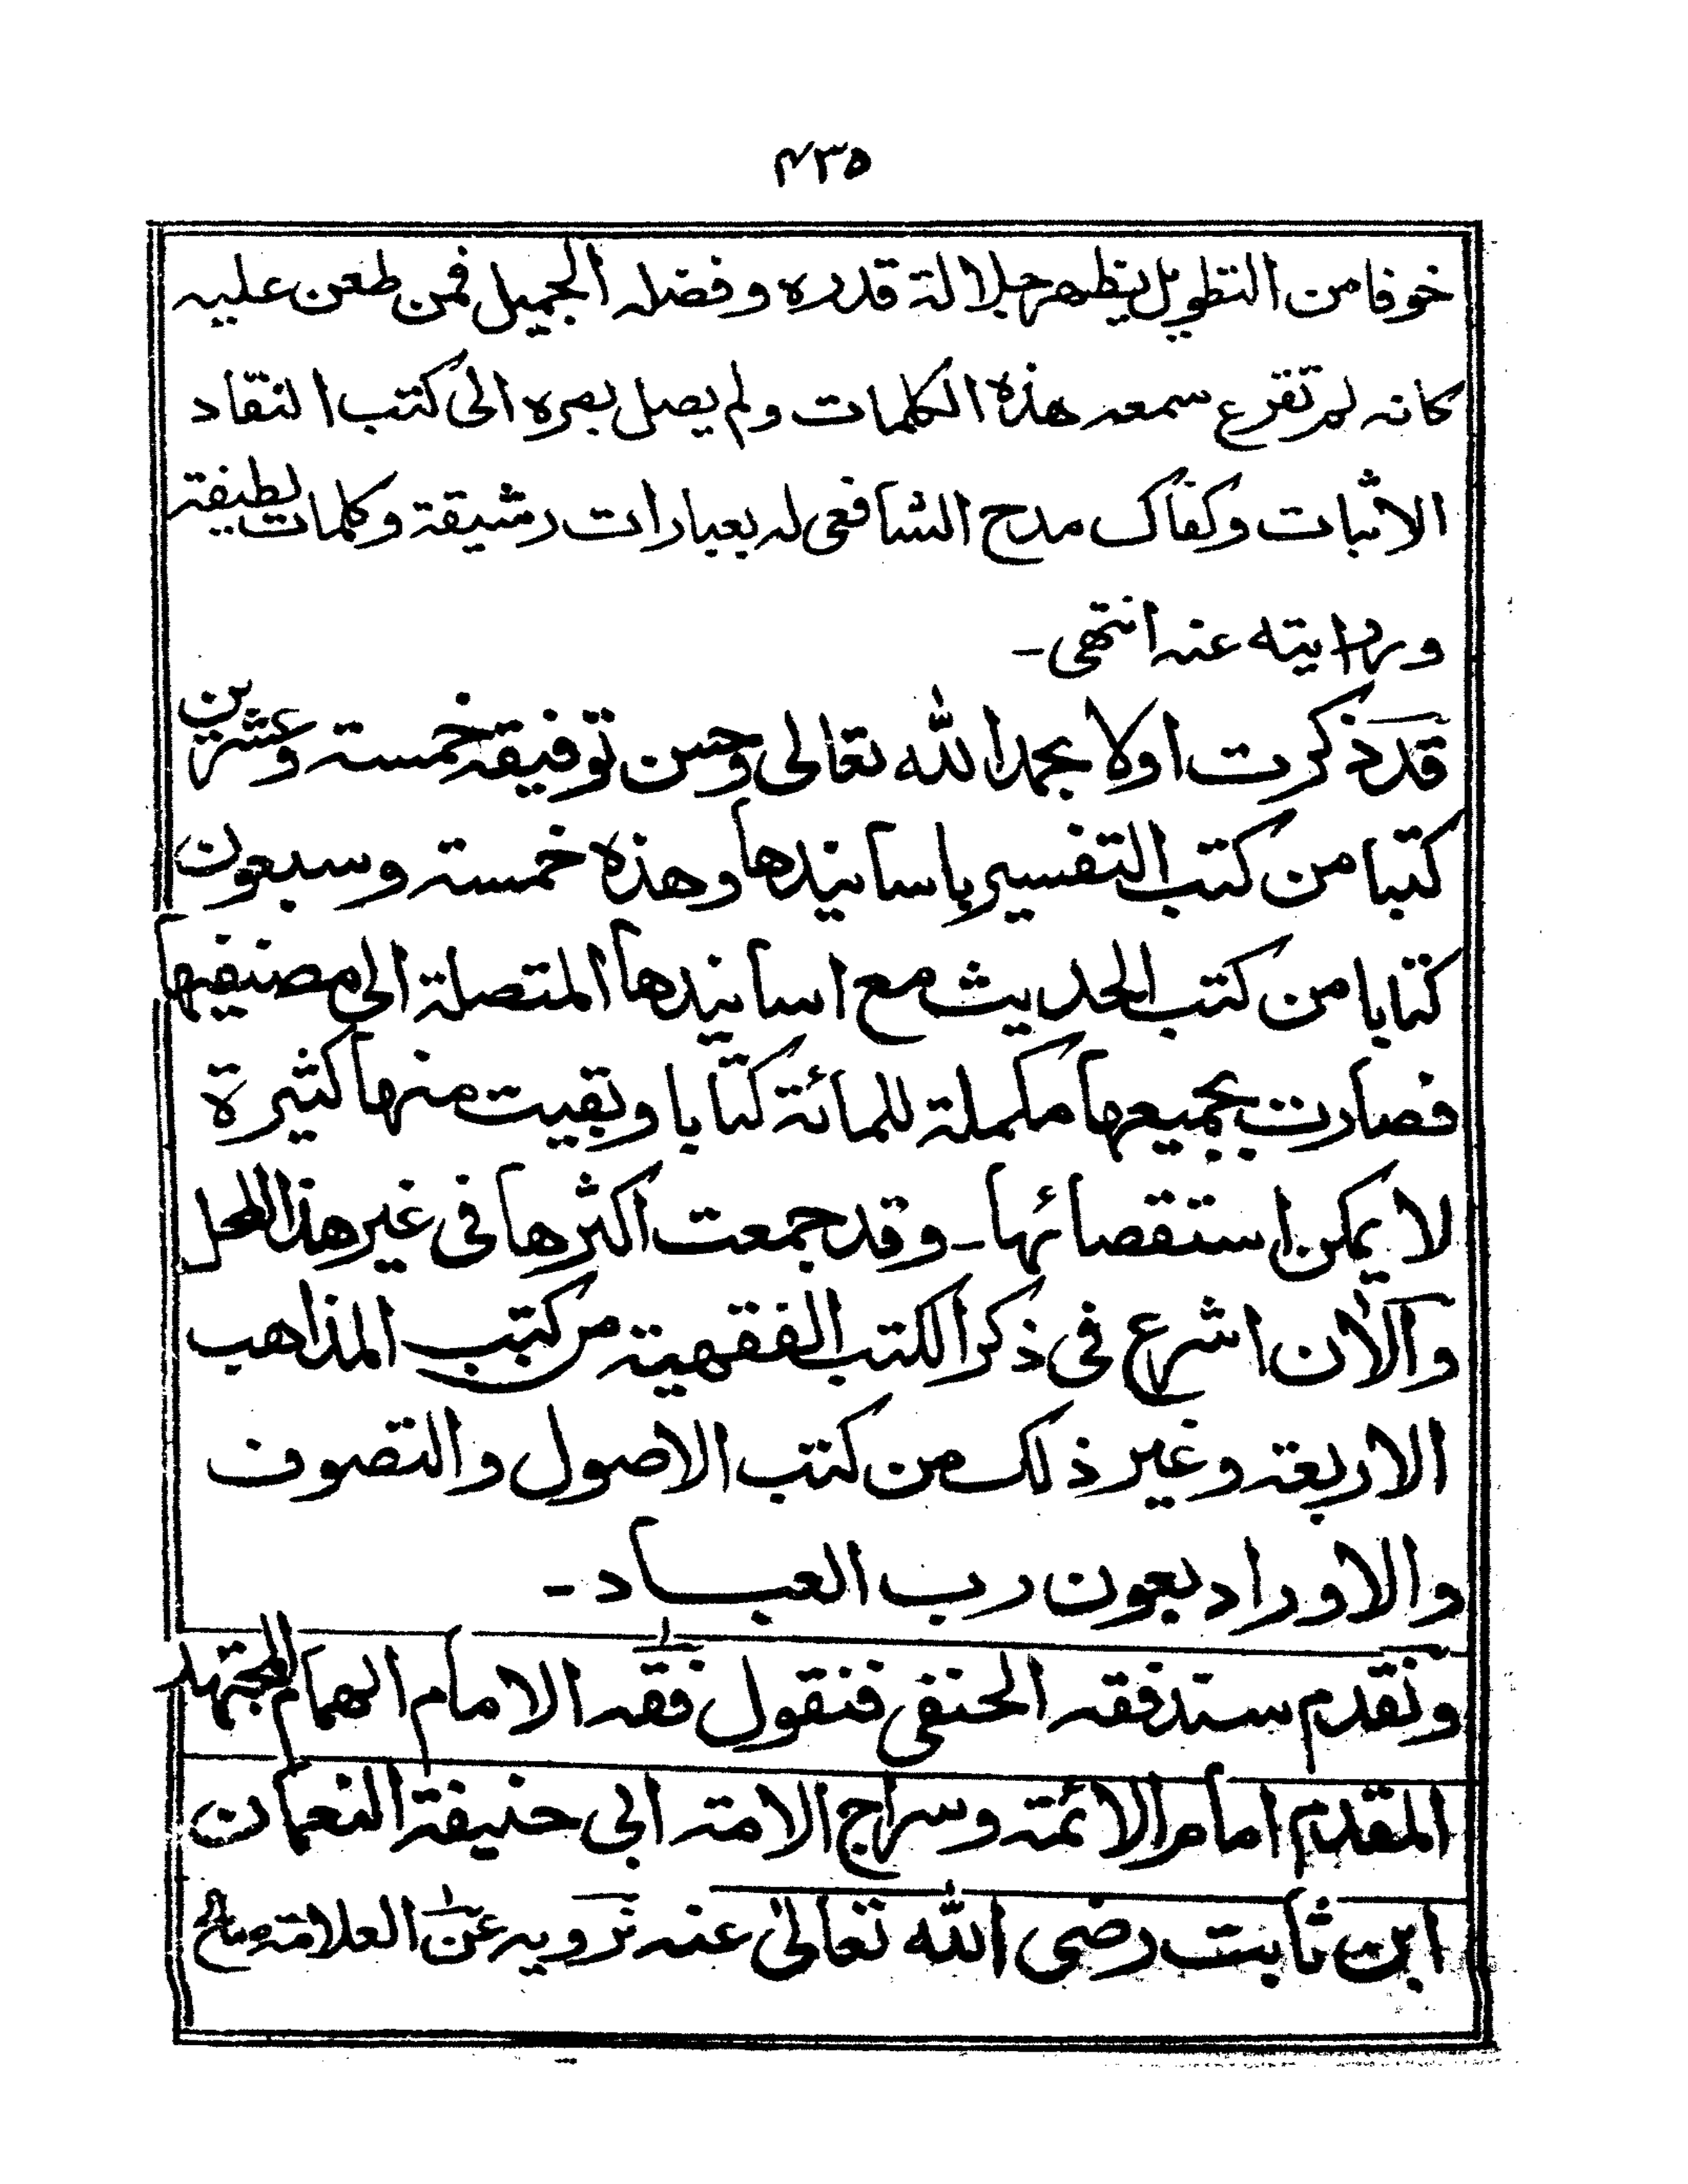 ٤٣٥
خوفا من التطويل يظهر جلالة قدره وفضله الجميل فمن طعن عليه
كانه لم تقرع سمعه هذه الكلمات ولم يصل بصره الى كتب النقاد
الاثبات وكفاك مدح الشافعى له بعبارات رشيقة وكلمات لطيفة
وروايته عنه انتهى ـ
قد ذكرت اولا بحمد الله تعالى وحسن توفيقه خمسة وعشرين
كتبا من كتب التفسير باسانيدها وهذه خمسة وسبعون
كتابا من كتب الحديث مع اسانيدها المتصلة الى مصنفيها
فصارت بجميعها مكملة للمائة كتابا وبقيت منها كثيرة
لا يمكن استقصائها ـ وقد جمعت اكثرها فى غير هذا المحل
والآن اشرع فى ذكر الكتب الفقهية من كتب المذاهب
الاربعة وغير ذلك من كتب الاصول والتصوف
والاوراد بعون رب العباد ـ
ونقدم سند فقه الحنفى فنقول فقه الامام الهمام المجتهد
المقدم امام الائمة وسراج الامة ابى حنيفة النعمان
ابن ثابت رضى الله تعالىٰ عنه نرويه عن العلامة صالح